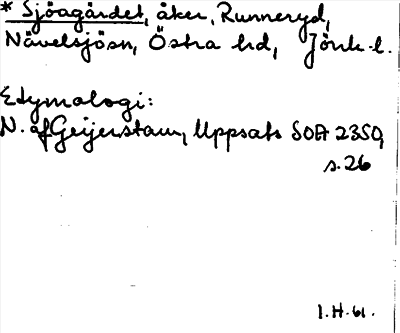 * Sjöagärdet, åker, Runneryd,
Nävelsjösn, Östra hd, Jönk. l.
Etymologi:
N. af Geijerstam, Uppsats SOA 2350,
s. 26
1.H.61.